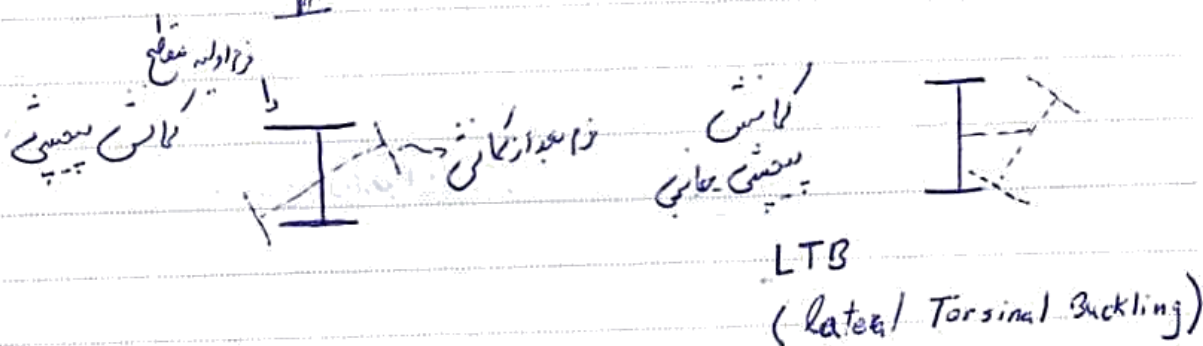 فرم اولیه مقطع
کمانش پیچشی
فرم بعد از کمانش
کمانش
پیچشی جانبی
LTB
(lateral Torsinal Buckling)